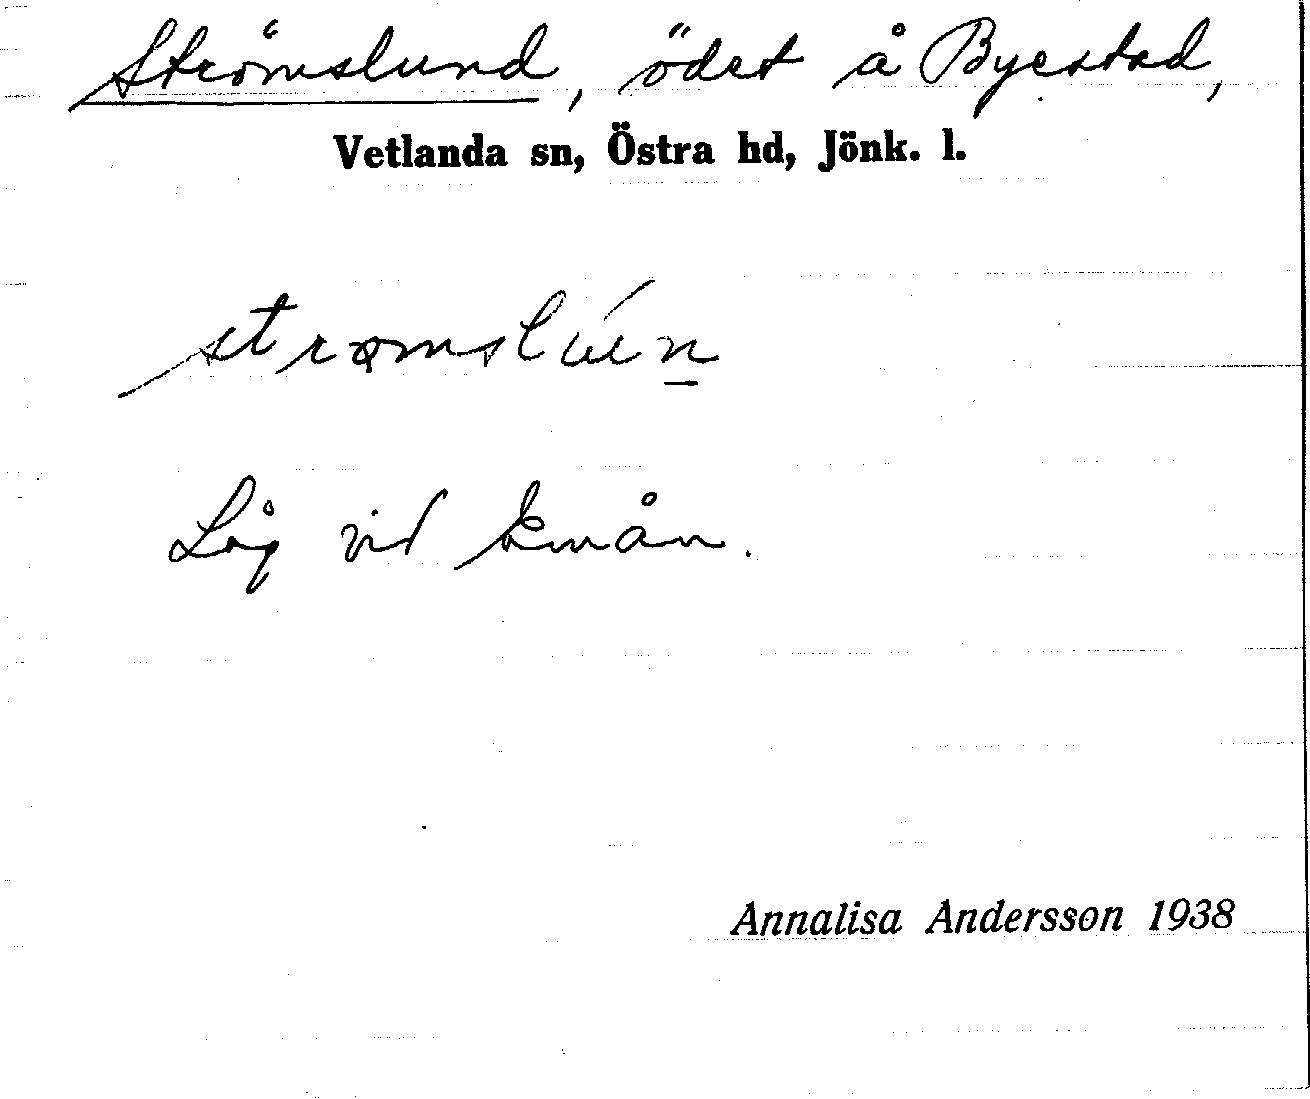 Strömslund, ödet å Byestad,
Vetlanda sn, Östra hd, Jönk. l.
Låg vid Emån.
Annalisa Andersson 1938